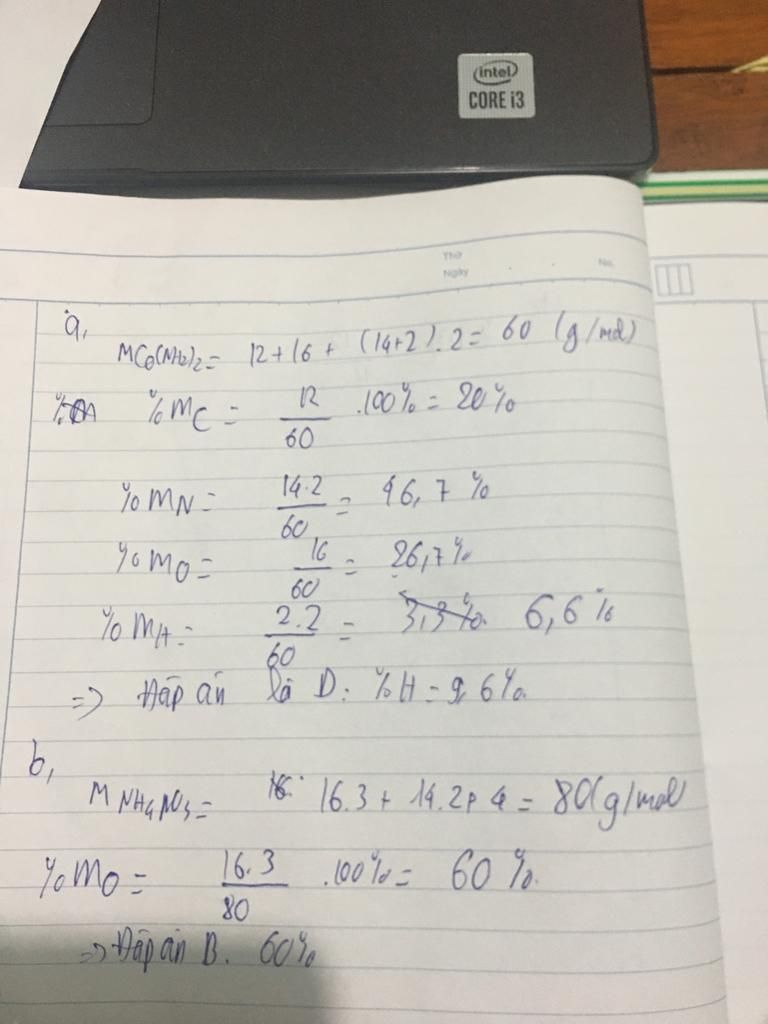 intel
CORE i3
Thứ
Ngày
No.
a,
MCO(NH2)2 = 12 + 16 + (14+2).2 = 60 (g/mol)
%mC = 12/60 .100% = 20%
%mN = 14.2/60 = 46,7%
%mO = 16/60 = 26,7%
%mH = 2.2/60 = 3,3% 6,6%
=> Đáp án là D: %H = 9,6%
b,
M NH4NO3 = 16.3 + 14.2 + 4 = 80(g/mol)
%mO = 16.3/80 .100% = 60%.
=> Đáp án B. 60%